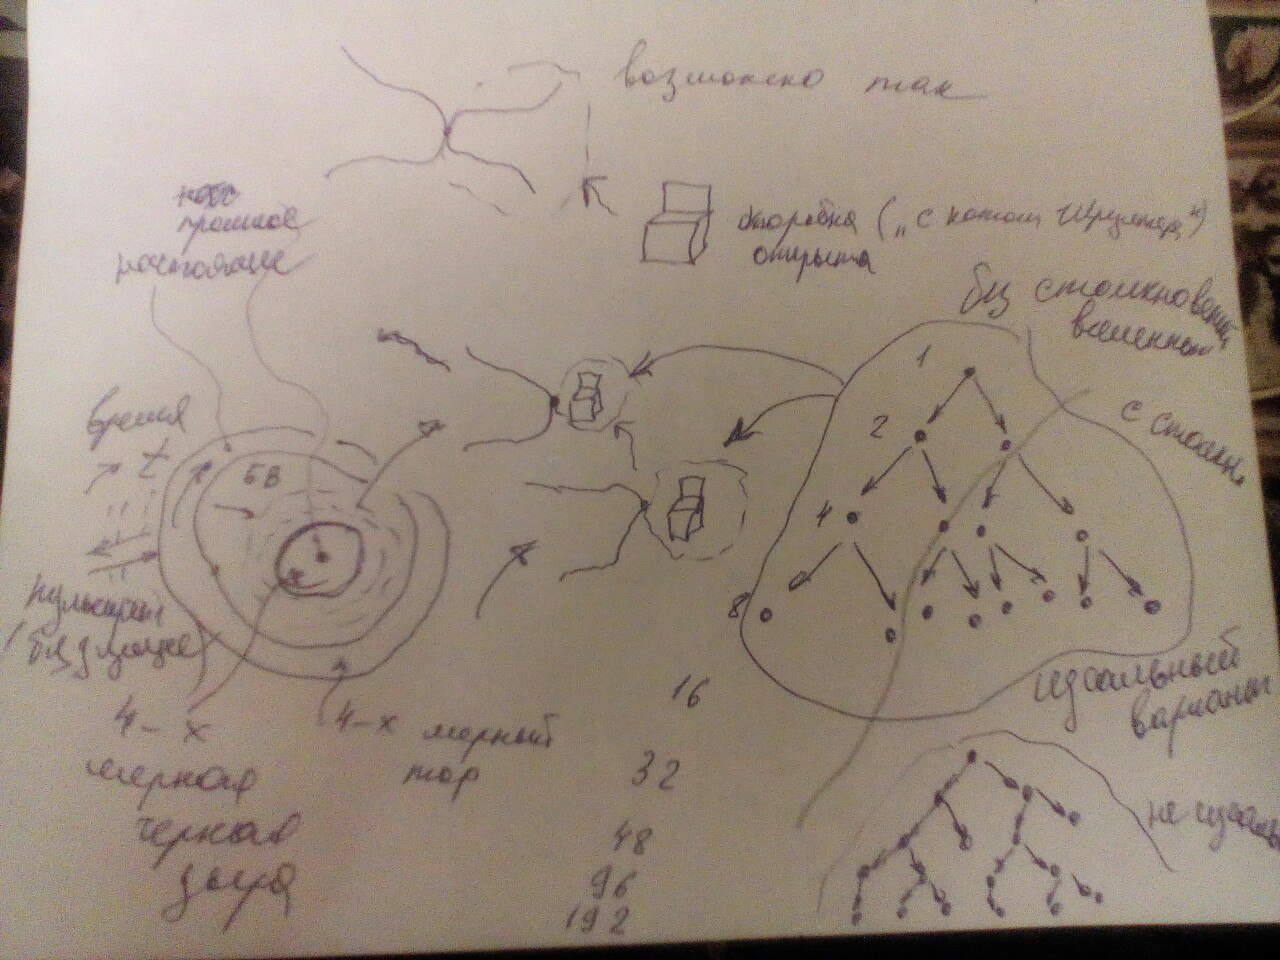 возможно так
прошлое
настоящее
коробка („с котом Шредингера")
открыта
без столкновений
вселенной
с столкн.
время
t
БВ
1
2
4
8
идеальный
вариант
16
32
48
96
192
4-х
мерная
черная
дыра
4-х мерный
тор
не идеальн